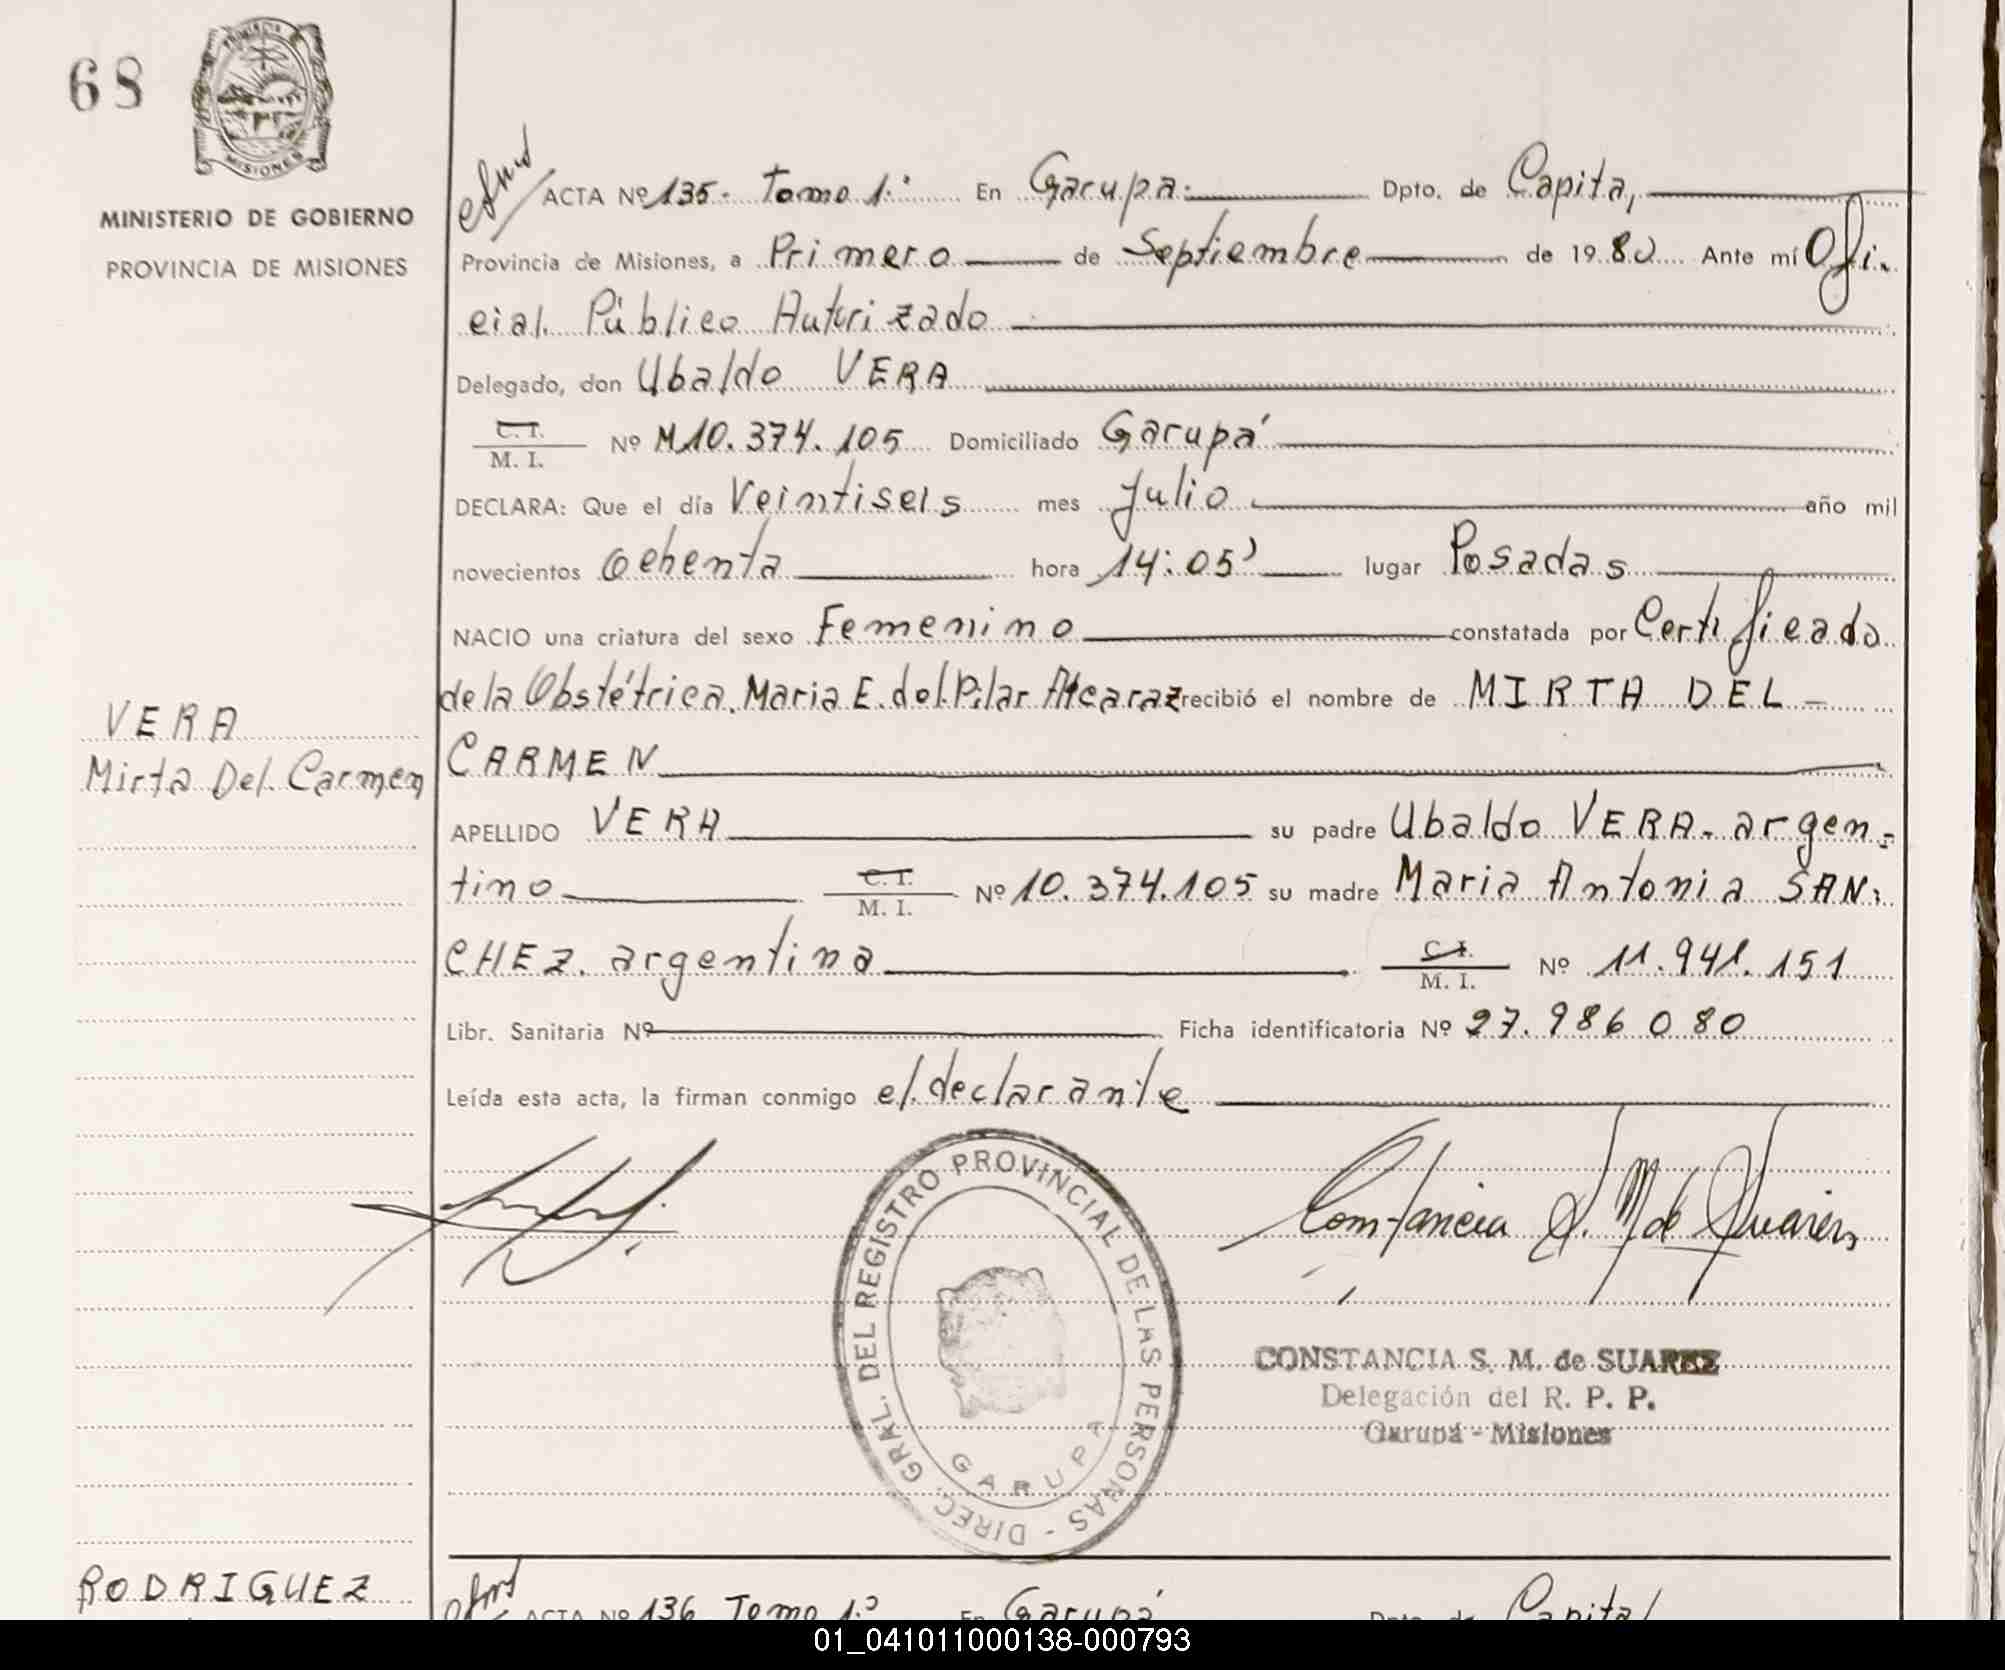 68
PROVINCIA DE
MISIONES
MINISTERIO DE GOBIERNO
PROVINCIA DE MISIONES
ACTA Nº 135- Tomo 1º En Garupa. Dpto. de Capital
Provincia de Misiones, a Primero de Septiembre de 1980 Ante mí Ofi-
cial Público Autorizado
Delegado, don Ubaldo VERA
C. I.
M. I. Nº M10.374.105 Domiciliado Garupá
DECLARA: Que el día Veintiseis mes Julio año mil
novecientos Ochenta hora 14:05' lugar Posadas
NACIO una criatura del sexo Femenino constatada por Certificado
de la Obstétrica. Maria E. del Pilar Alcaraz recibió el nombre de MIRTA DEL -
CARMEN
VERA
Mirta Del Carmen
APELLIDO VERA su padre Ubaldo VERA- argen-
tino C. I. M. I. Nº 10.374.105 su madre Maria Antonia SAN-
CHEZ. argentina C. I. M. I. Nº 11.941.151
Libr. Sanitaria Nº Ficha identificatoria Nº 27.986080
Leída esta acta, la firman conmigo el declarante
Constancia S. M de Suarez
DIREC. GRAL. DEL REGISTRO PROVINCIAL DE LAS PERSONAS -
GARUPA
CONSTANCIA S. M. de SUAREZ
Delegación del R. P. P.
Garupá - Misiones
RODRIGUEZ
ACTA Nº 136 Tomo 1.º En Garupá Dpto. de Capital
01_041011000138-000793